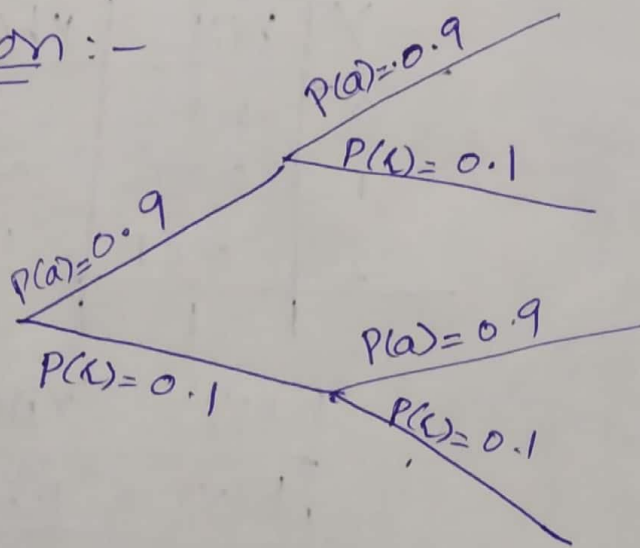 on :-
P(a)=0.9
P(r)= 0.1
P(a)=0.9
P(r)= 0.1
P(a)= 0.9
P(r)= 0.1